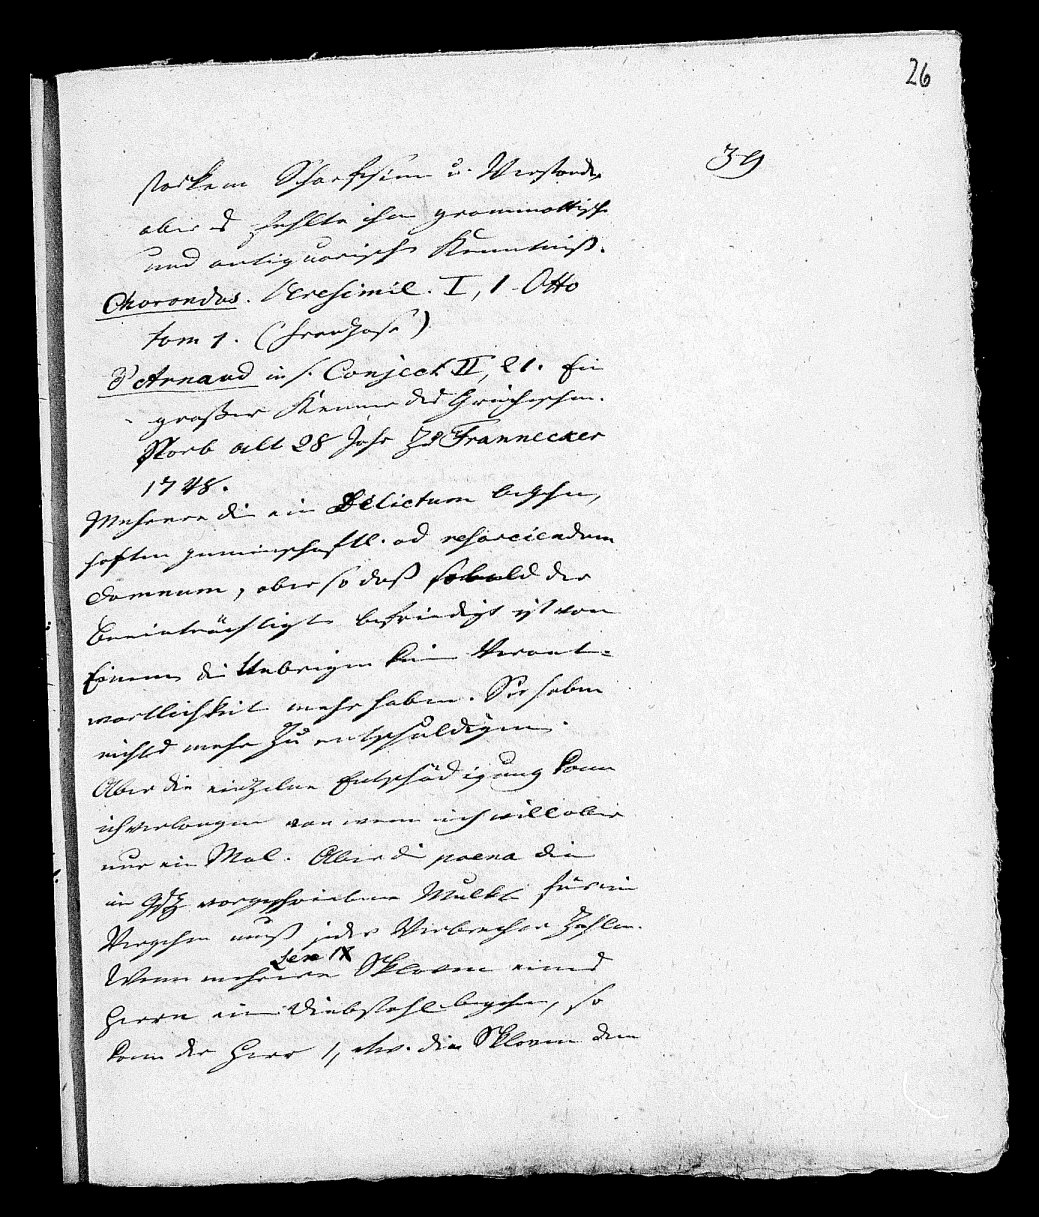 26
39
starkem Scharfsinn u. Verstande
aber es fehlte ihm grammattische
und antiquarische Kenntniß.
Charondas. Veresimil. I, 1 Otto
tom 1. (Franzose)
d'Arnaud in s. Conject II, 21. Ein
großer Kenner des Griechischen.
Starb alt 28 Jahr zu Frannecker
1748.
Mehrere die ein Delictum begehen,
haften gemeinschaftl. ad resarciendum
damnum, aber so daß sobald der
Beeinträchtigte befriedigt ist von
Einem, die Uebrigen keine Verant=
wortlichkeit mehr haben. Sie haben
nichts mehr zu entschuldigen.
Aber die einzelne Entschädigung kann
ich verlangen von wem ich will aber
nur ein Mal. Aber die poena die
im Gesetz vorgeschriebene Multe für ein
Vergehen muß jeder Verbrecher zahlen.
Wenn mehrere Sklaven eines
Herrn ein Diebstahl begehen, so
kann der Herr 1, die Sklaven dem